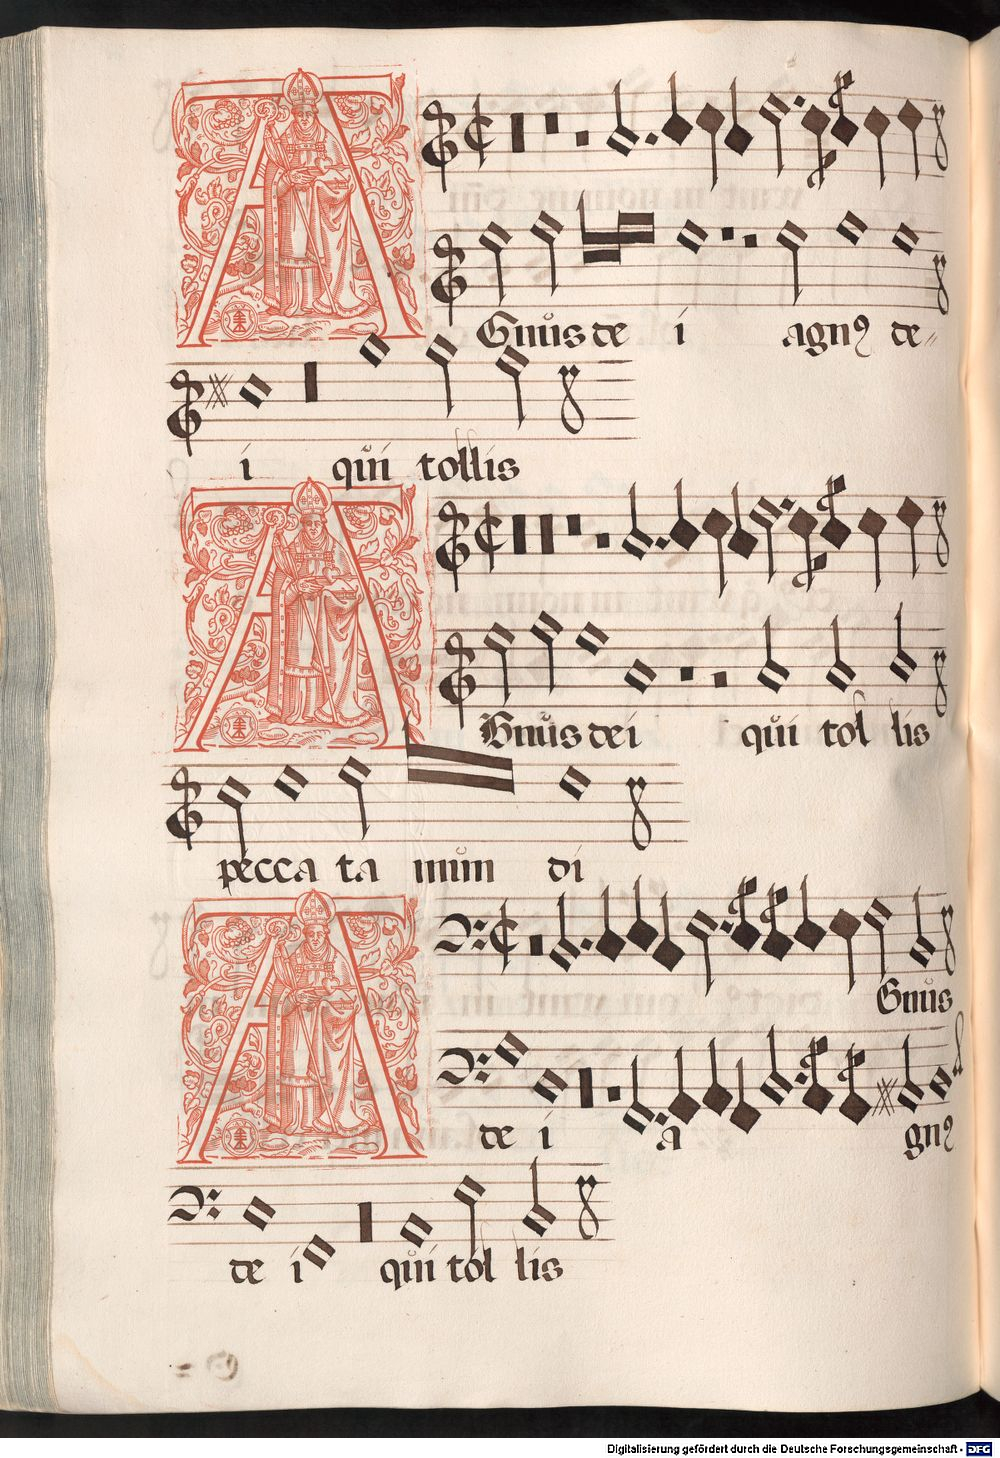 A
Gnus de i agnꝰ de-
i qui tollis
A
Gnus dei qui tol lis
pecca ta mun di
A
Gnus
de i a gnꝰ
de i qui tol lis
Digitalisierung gefördert durch die Deutsche Forschungsgemeinschaft - DFG